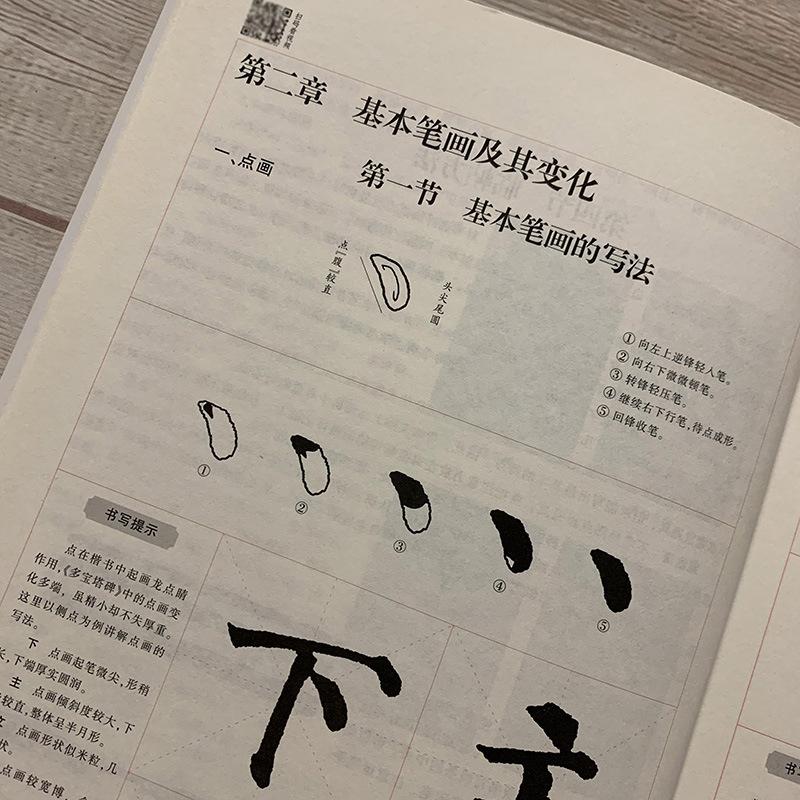 扫码看视频
第二章 基本笔画及其变化
第一节 基本笔画的写法
一、点画
点腹较直
头尖尾圆
①向左上逆锋轻入笔。
②向右下微微顿笔。
③转锋轻压笔。
④继续右下行笔,待点成形。
⑤回锋收笔。
① ② ③ ④ ⑤
书写提示
点在楷书中起画龙点睛
作用,《多宝塔碑》中的点画变
化多端,虽精小却不失厚重。
这里以侧点为例讲解点画的
写法。
下 点画起笔微尖,形稍
长,下端厚实圆润。
主 点画倾斜度较大,下
较直,整体呈半月形。
点画形状似米粒,几
状。
点画较宽博,
下